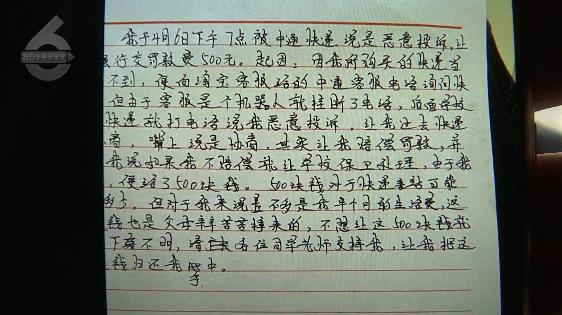 我于4月6日下午7点被中通快递说是恶意投诉,让
我行交可款费500元。起因:因我所购买的快递当
不到,便向淘宝客服语的中通客服电话询问快
但由于客服是个机器人我挂断了电话,后面学校
快递就打电话说我恶意投诉,让我过去快递
商,嘴上说是协商,其实让我赔偿可款,并
我说如果我不赔偿我让学校保卫处处理,由于我
,便给了500块钱。500块钱对于快递来说可能
多,但对于我来说差不多是我半个月的生活费,这
钱也是父母辛辛苦苦挣来的,不想让这500块钱就
下落不明,请各位司掌光师支持我,让我把这
钱归还我手中。